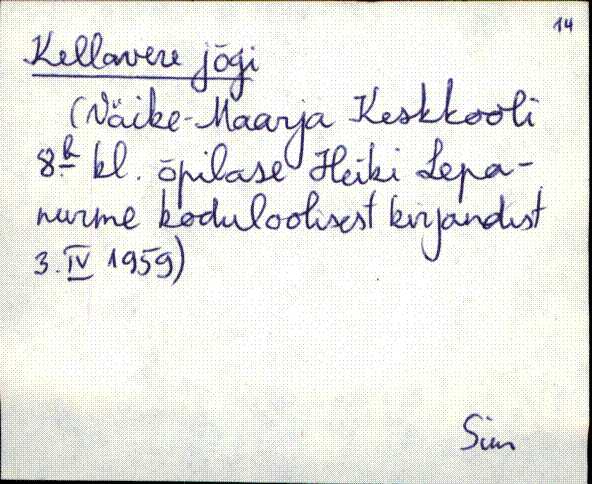 14
Kellavere jõgi
(Väike-Maarja Keskkooli
8.b kl. õpilase Heiki Lepa-
nurme koduloolisest kirjandist
3. IV 1959)
Sim